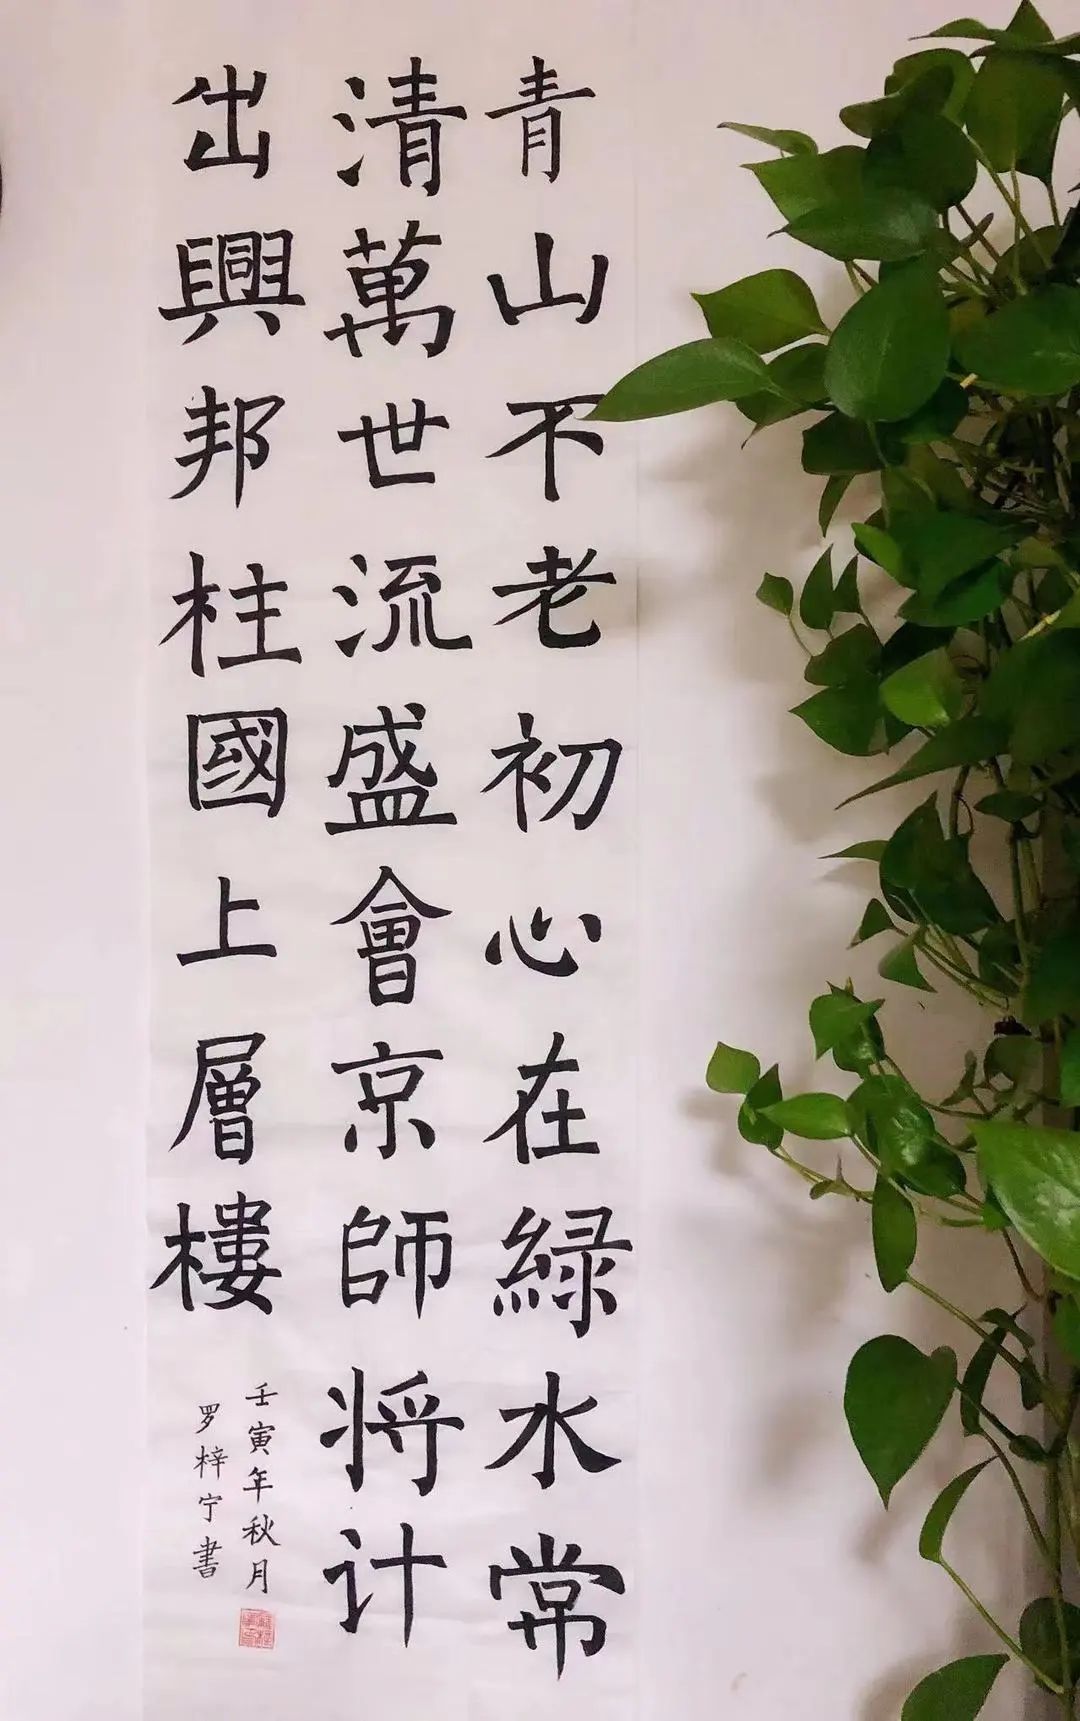 青山不老初心在綠水常
清萬世流盛會京師将计
出興邦柱國上層樓
壬寅年秋月
罗梓宁書